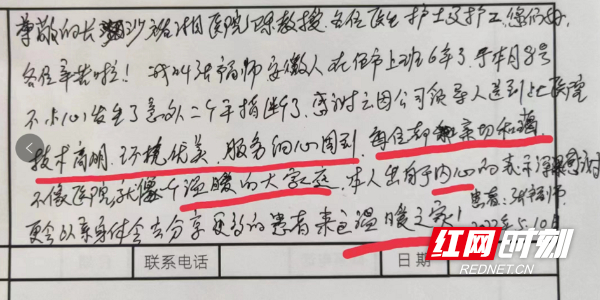 尊敬的长沙裕湘医院陈教授、各位医生护士及护工、您们好,
各位辛苦啦!我叫张福师安徽人在伍市上班6年了,于本月8号
不小心发生了意外二个手指断了,感谢公司领导人送到 医院
技术高明、环境优美、服务的心周到,每位都亲切和蔼,
不像医院就像个温暖的大家庭,本人出自于内心的表示深深感谢
更会以亲身体会去分享更多的患者来这温暖之家!
患者:张福师
2022年5.10号
联系电话
日期
红网时刻
REDNET.CN